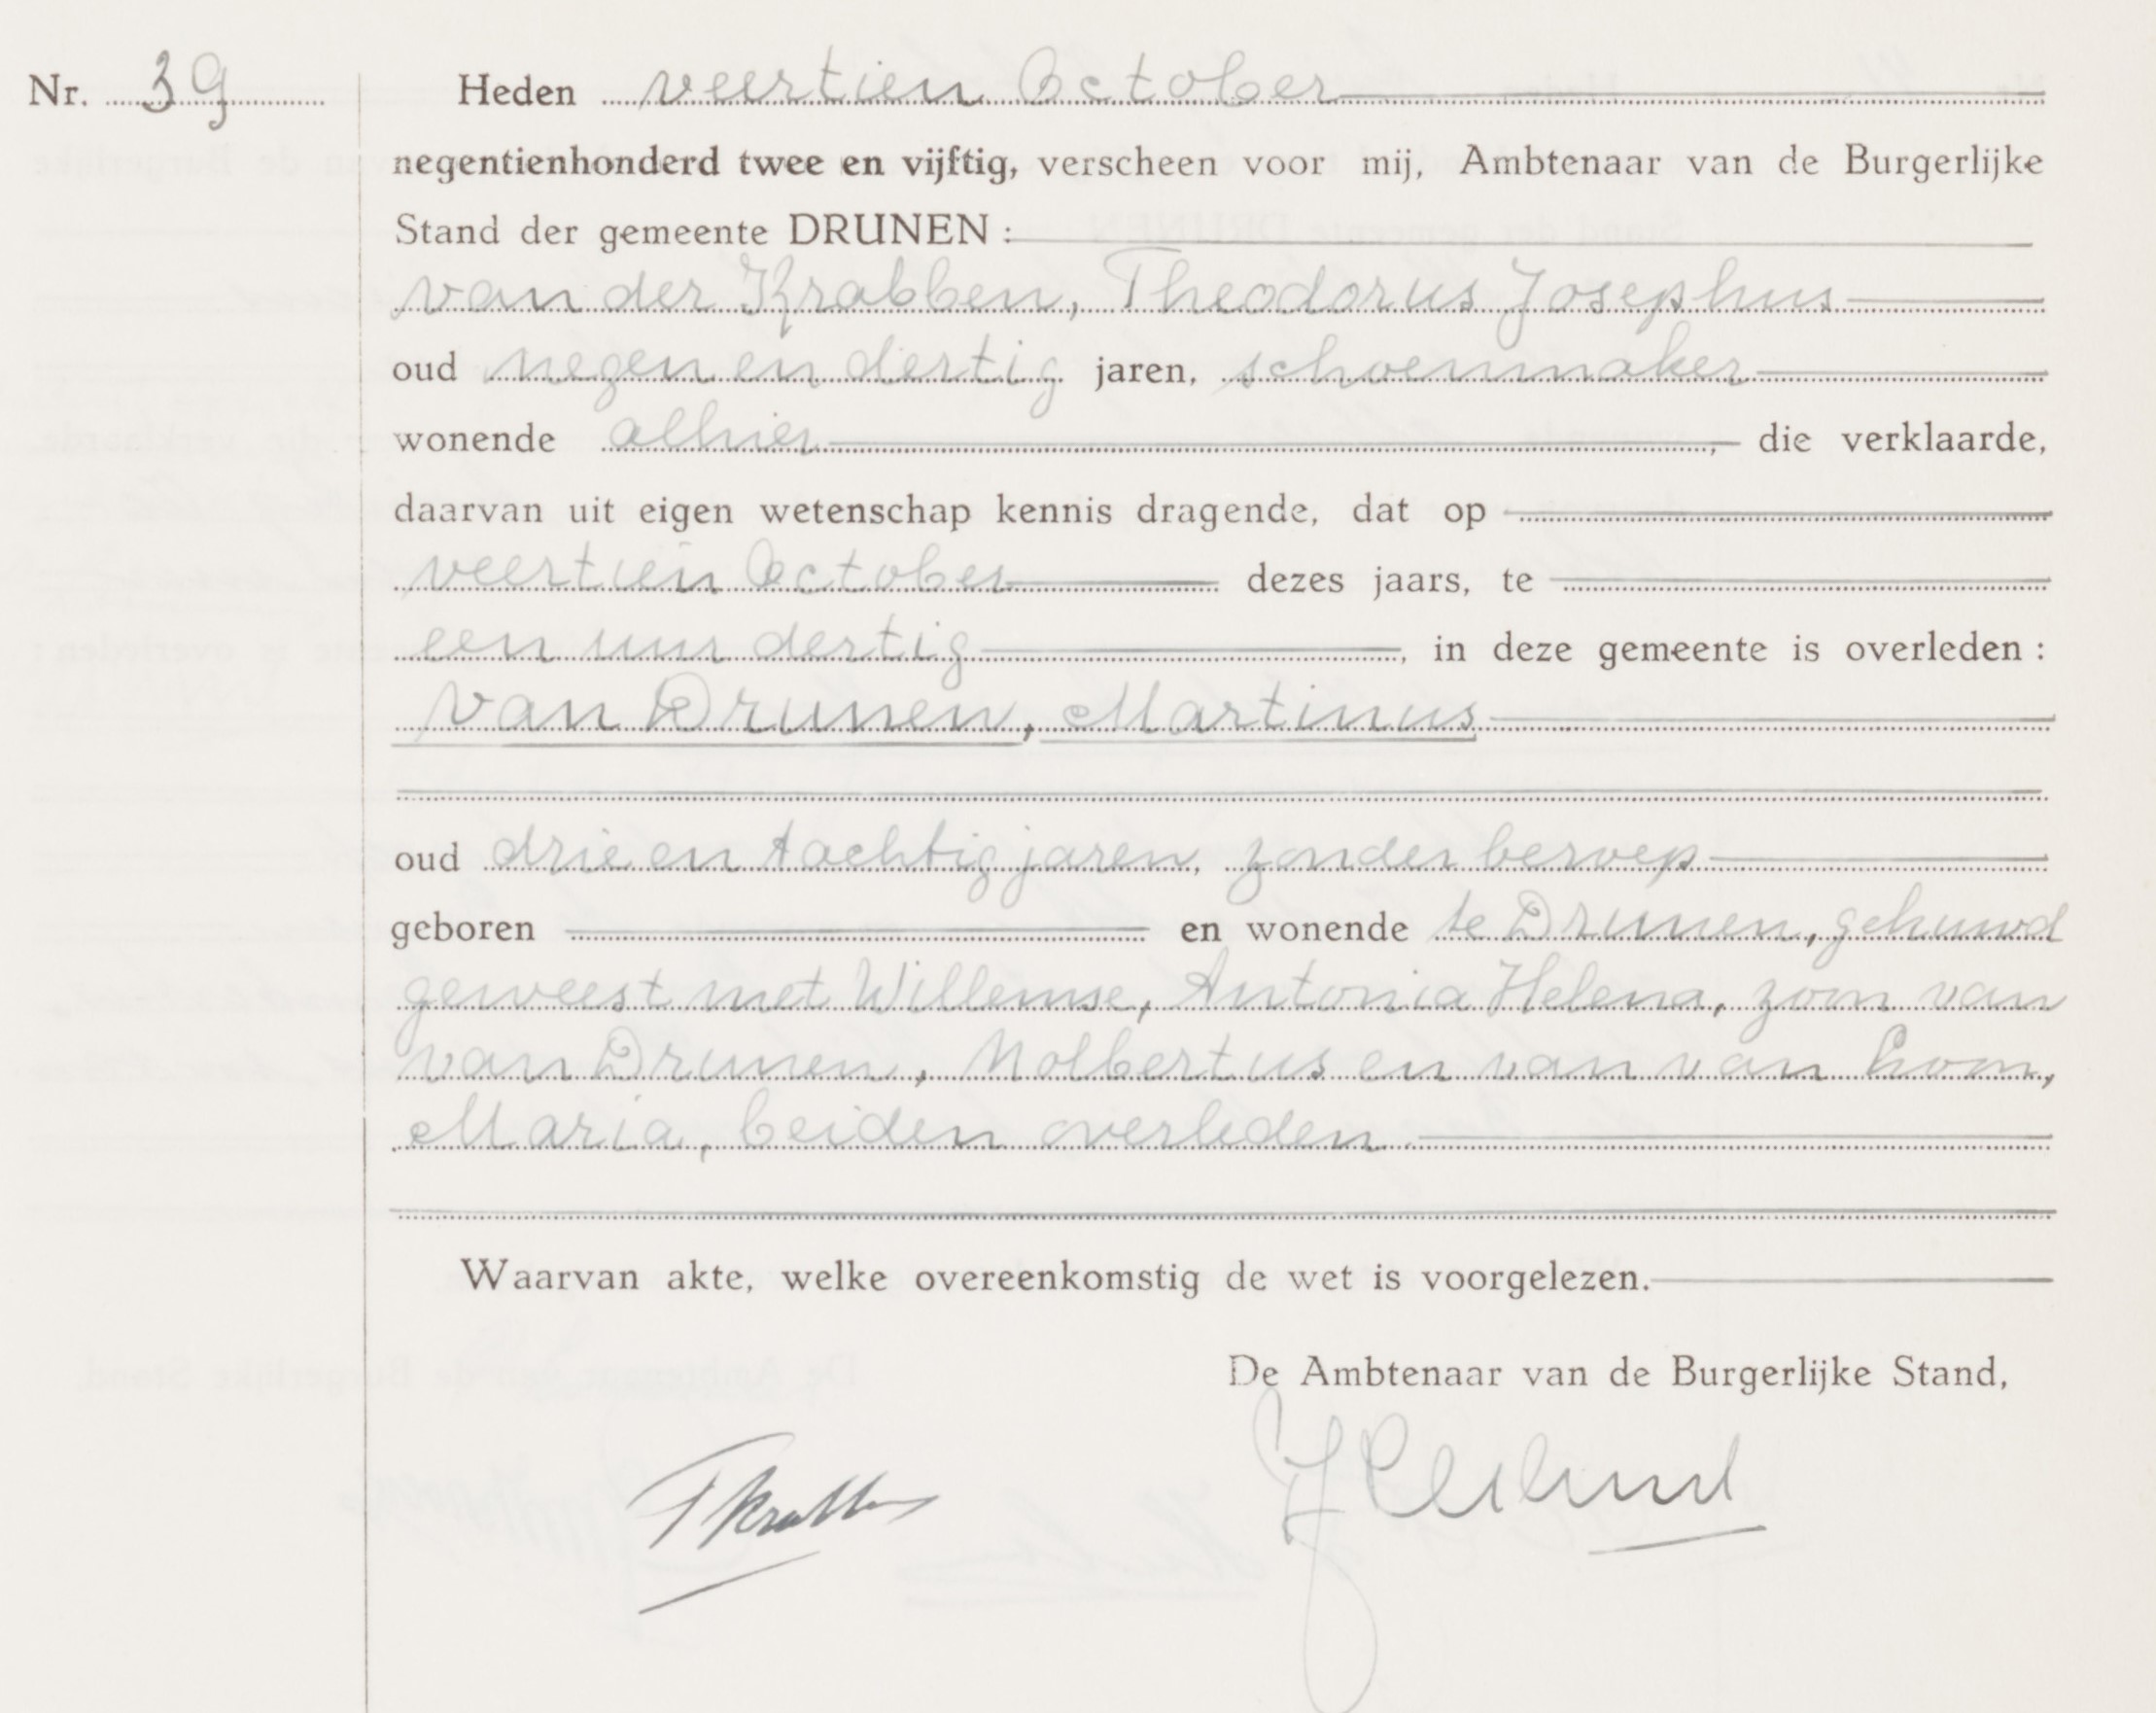 Nr. 39
Heden veertien October
negentienhonderd twee en vijftig, verscheen voor mij, Ambtenaar van de Burgerlijke
Stand der gemeente DRUNEN:
van der Krabben, Theodorus Josephus
oud negen en dertig jaren, schoenmaker
wonende alhier, die verklaarde,
daarvan uit eigen wetenschap kennis dragende, dat op
veertien October dezes jaars, te
een uur dertig, in deze gemeente is overleden:
van Drunen, Martinus
oud drie en tachtig jaren, zonder beroep
geboren en wonende te Drunen, gehuwd
geweest met Willemse, Antonia Helena, zoon van
van Drunen, Nolbertus en van van Loon,
Maria, beiden overleden
Waarvan akte, welke overeenkomstig de wet is voorgelezen.
De Ambtenaar van de Burgerlijke Stand,